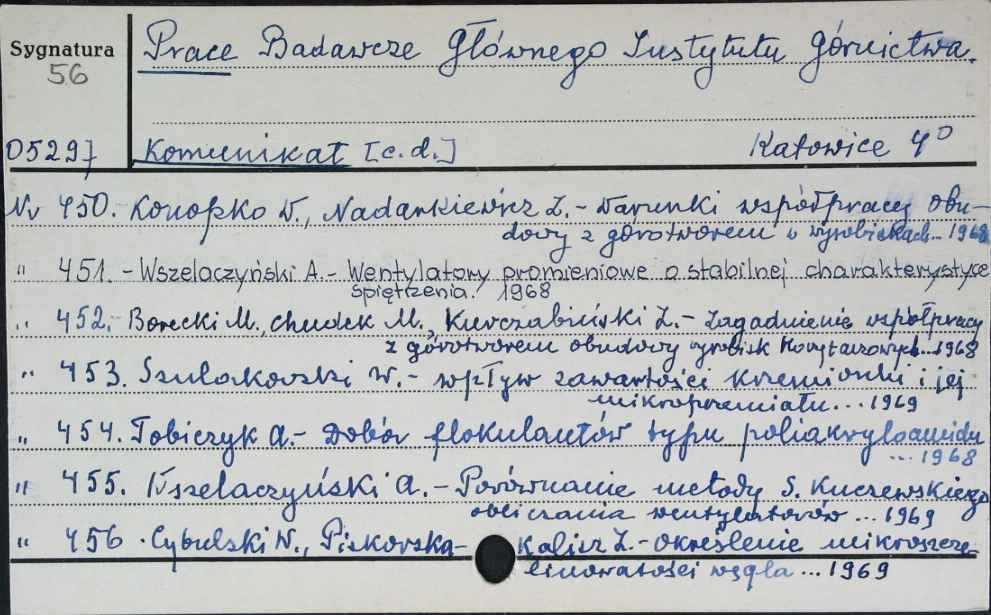 Sygnatura
56
Prace Badawcze Głównego Instytutu Górnictwa.
05297
Komunikat [c.d.] Katowice 4°
Nr 450. Konopko W., Nadankiewicz Z. - Warunki współpracy obu-
dowy z górotworem w wyrobiskach... 1968
" 451. - Wszelaczyński A. - Wentylatory promieniowe o stabilnej charakterystyce
spiętrzenia. 1968
" 452. Borecki M., Chudek M., Kurczabiński L. - Zagadnienie współpracy
z górotworem obudowy wyrobisk korytarzowych...1968
" 453. Szulakowski W. - wpływ zawartości krzemionki i jej
mikroprzemiału... 1969
" 454. Tobiczyk A. - Dobór flokulantów typu poliakryloamidu
... 1968
" 455. Wszelaczyński A. - Porównanie metody S. Kuczewskiego
obliczania wentylatorów ... 1969
" 456. Cybulski W., Piskorska- Kalisz Z. - Określenie mikroszcze-
linowatości węgla ... 1969